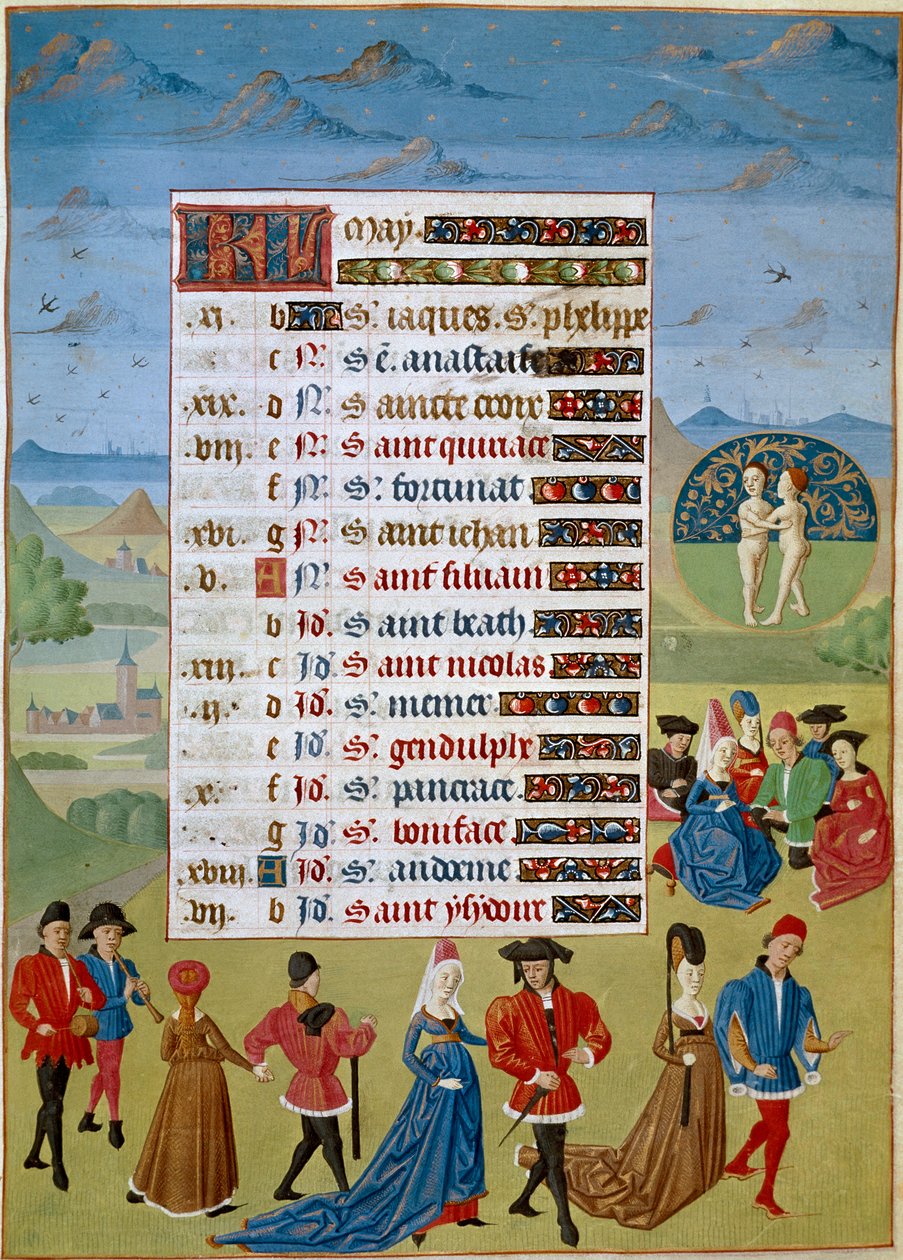 KL May.
.xi. b S.t iaques. S.t phelippe
c N.s S.e anastaise
.xix. d N.s Saincte croix
.viij. e N.s Saint quiriace
f N.s S.t fortunat.
.xvi. g N.s Saint iehan
.v. A N.s Saint siluain
b Jd.s Saint beath.
.xiij. c Jd.s Saint nicolas
.ij. d Jd.s S.t memer.
e Jd.s S.t gendulphe
.x. f Jd.s S.t pancrace.
g Jd.s S.t boniface.
.xviij. A Jd.s S.t andoeme
.vij. b Jd.s Saint ysydoire